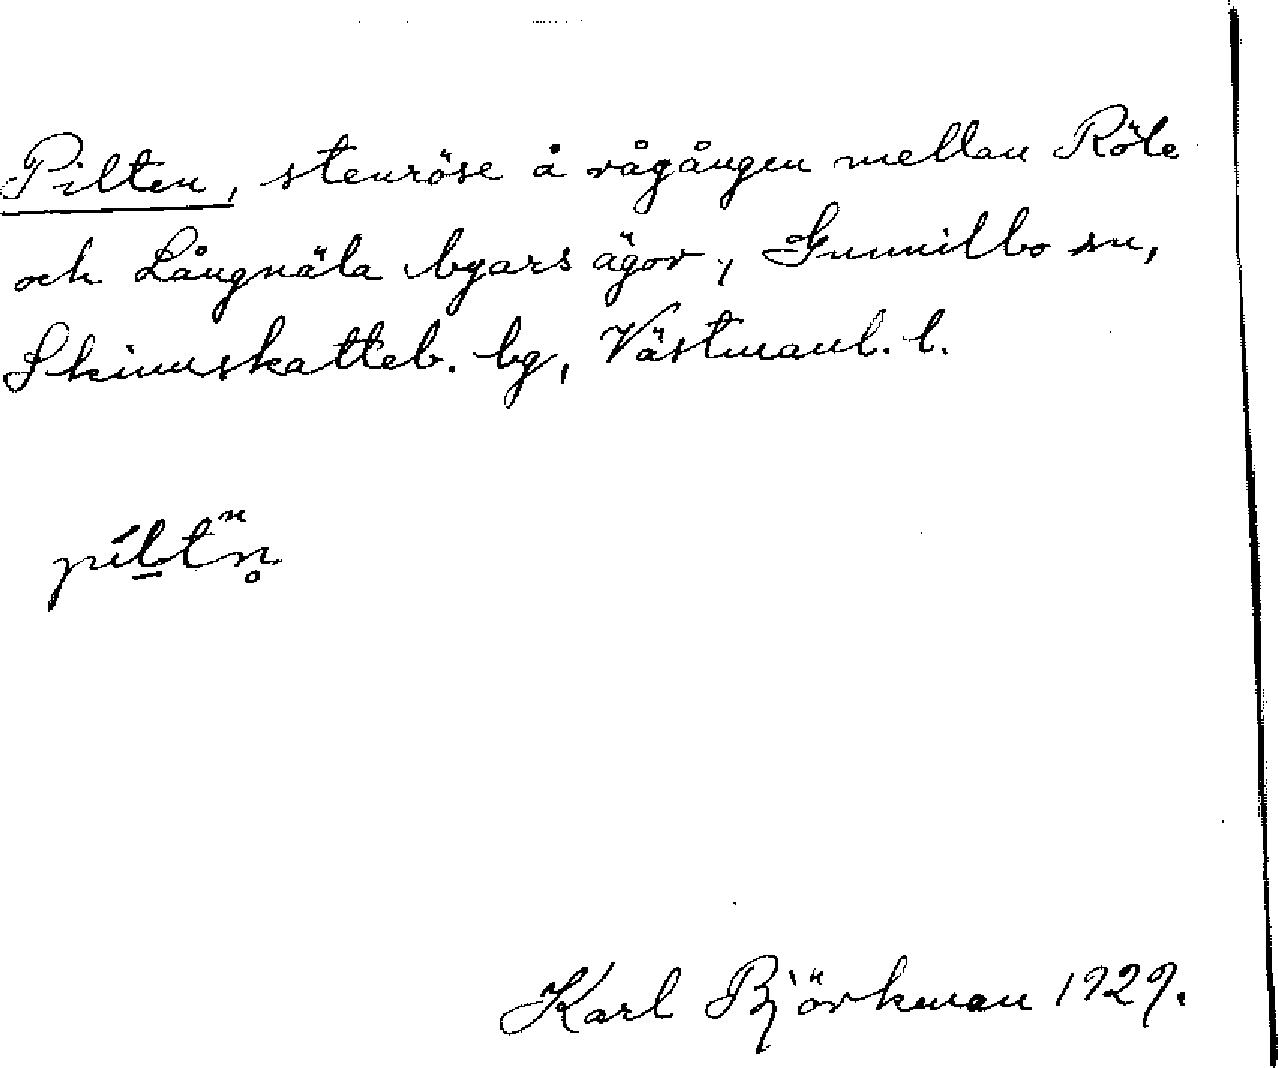 Pilten, stenröse å rågången mellan Röle
och Långnäla byars ägor, Gunnilbo sn,
Skinnskatteb. bg, Västmanl. l.
píltn̥
Karl Björkman 1929.